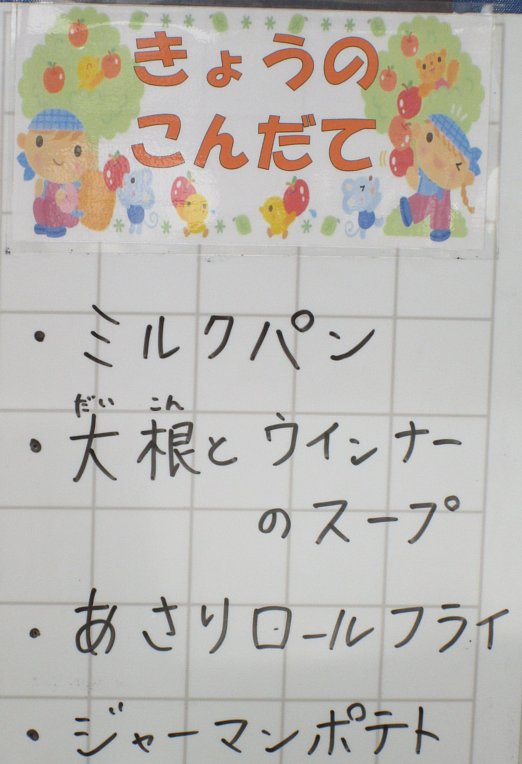 きょうの
こんだて
・ミルクパン
だい こん
・大根とウインナー
のスープ
・あさりロールフライ
・ジャーマンポテト